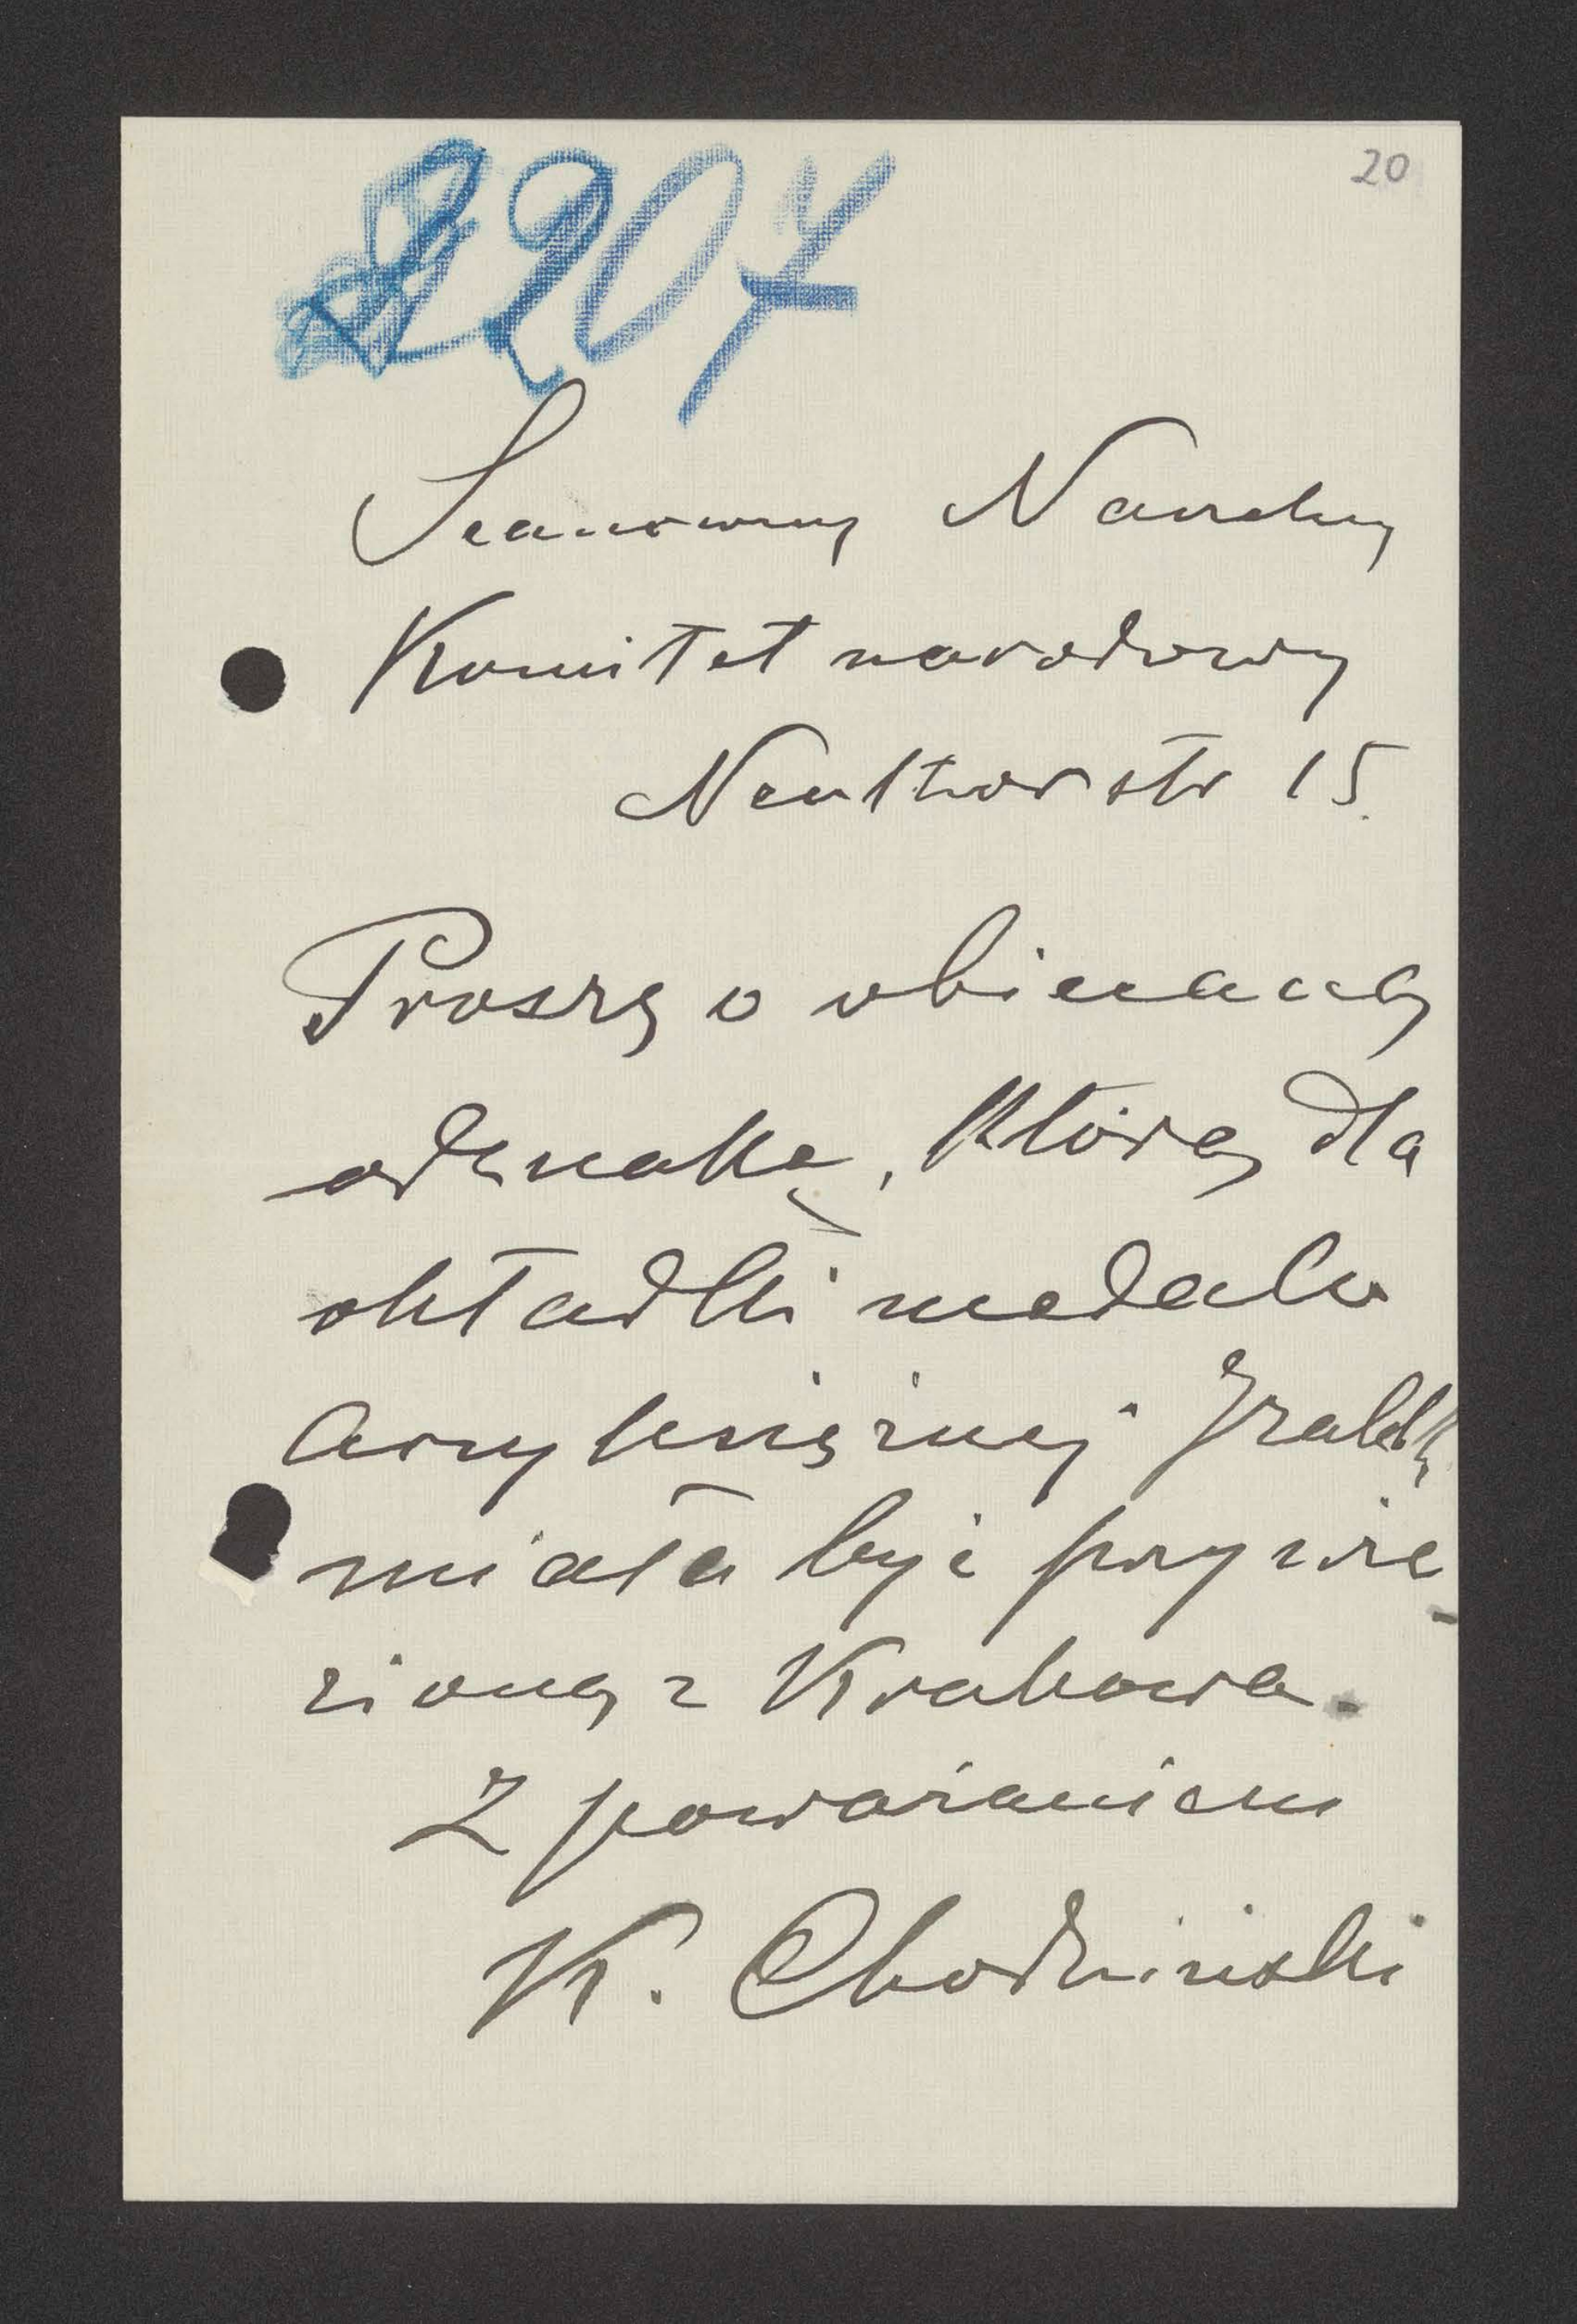 20
2207
Szanowny Naczelny
Komitet narodowy
Neuthorstr 15.
Proszę o obiecaną
odznakę, którą dla
okładki medalu
Arcyksiężnej Izabelli
miała być przywie-
zioną z Krakowa.
Z poważaniem
K. Chodziński